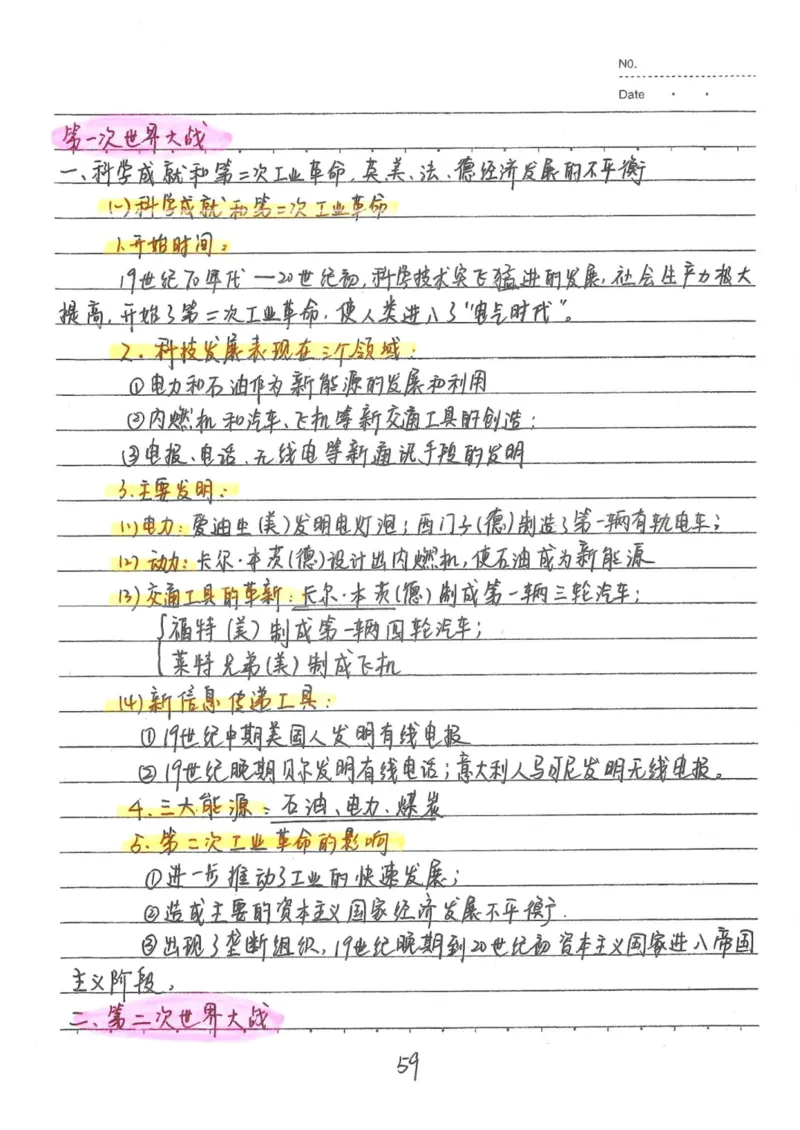 NO.
Date
第一次世界大战
一、科学成就和第二次工业革命,英、美、法、德经济发展的不平衡
(一)科学成就和第二次工业革命
1.开始时间:
19世纪70年代—20世纪初,科学技术突飞猛进的发展,社会生产力极大
提高,开始了第二次工业革命,使人类进入了"电气时代"。
2、科技发展表现在三个领域:
①电力和石油作为新能源的发展和利用
②内燃机和汽车、飞机等新交通工具的创造;
③电报、电话、无线电等新通讯手段的发明
3.主要发明:
(1)电力:爱迪生(美)发明电灯泡;西门子(德)制造了第一辆有轨电车;
(2)动力:卡尔·本茨(德)设计出内燃机,使石油成为新能源
(3)交通工具的革新:卡尔·本茨(德)制成第一辆三轮汽车;
福特(美)制成第一辆四轮汽车;
莱特兄弟(美)制成飞机
(4)新信息传递工具:
①19世纪中期美国人发明有线电报
②19世纪晚期贝尔发明有线电话;意大利人马可尼发明无线电报。
4.三大能源:石油、电力、煤炭
5.第二次工业革命的影响
①进一步推动了工业的快速发展;
②造成主要的资本主义国家经济发展不平衡.
③出现了垄断组织,19世纪晚期到20世纪初资本主义国家进入帝国
主义阶段。
二、第二次世界大战
59